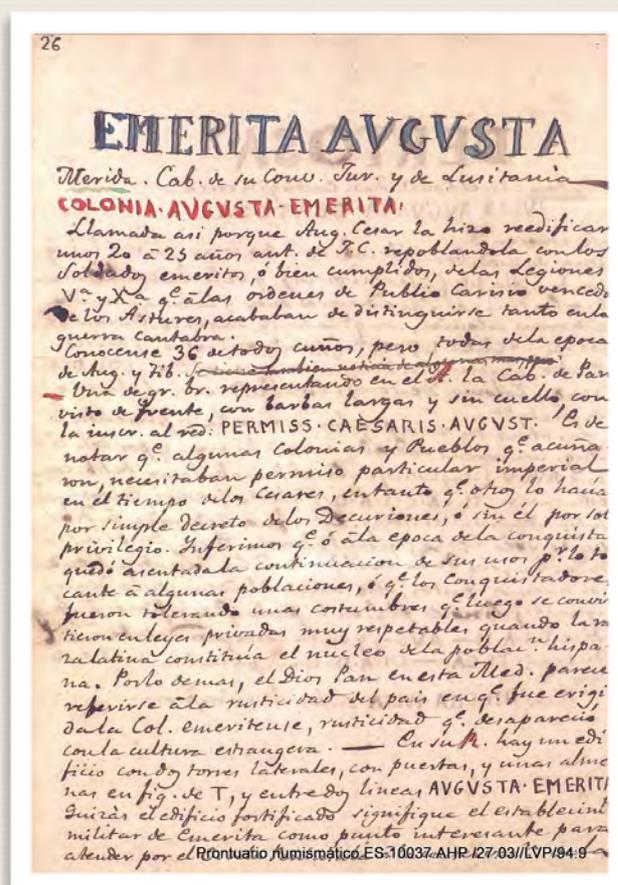 26
EMERITA AVGVSTA
Merida. Cab. de su Conv. Jur. y de Lusitania
COLONIA·AVGVSTA·EMERITA·
Llamada asi porque Aug. Cesar la hizo reedificar
unos 20 á 25 años ant. de J.C. repoblandola con los
Soldados emeritos, ó bien cumplidos, delas Legiones
Vª y Xª qᵉ álas ordenes de Publio Carisio vencedo
de los Astures, acababan de distinguirse tanto enla
guerra cantabra.
Conocense 36 de todos cuños, pero todas dela epoca
de Aug. y Tib.
Una de gr. br. representando en el A. la Cab. de Pan
visto de frente, con barbas largas y sin cuello con
la inscr. al red: PERMISS·CAESARIS·AVGVST. Es de
notar qᵉ algunas Colonias y Pueblos qᵉ acuña-
ron, necesitaban permiso particular imperial
en el tiempo delos Cesares, entanto qᵉ otros lo hacia
por simple decreto delos Decuriones, ó sin él por sol
privilegio. Inferimos qᵉ ó ála epoca dela conquista
quedó asentada la continuacion de sus usos pʳ lo to
cante á algunas poblaciones, ó qᵉ los Conquistadore
fueron tolerando unas costumbres qᵉ luego se convir
tieron en leyes privadas muy respetables quando la ra
za latina constituia el nucleo dela poblacⁿ hispa-
na. Porlo demas, el Dios Pan en esta Med. parece
referirse ála rusticidad del pais en qᵉ fue erigi
da la Col. emeritense, rusticidad qᵉ desapareció
con la cultura estrangera. — En su R. hay un edi
ficio con dos torres laterales, con puertas, y unas alme
nas en fig. de T, y entre dos lineas AVGVSTA·EMERITA
Quizás el edificio fortificado signifique el establecim
militar de Emerita como punto interesante para
atender por el
Prontuario numismático ES.10037.AHP /27.03//LVP/94.9